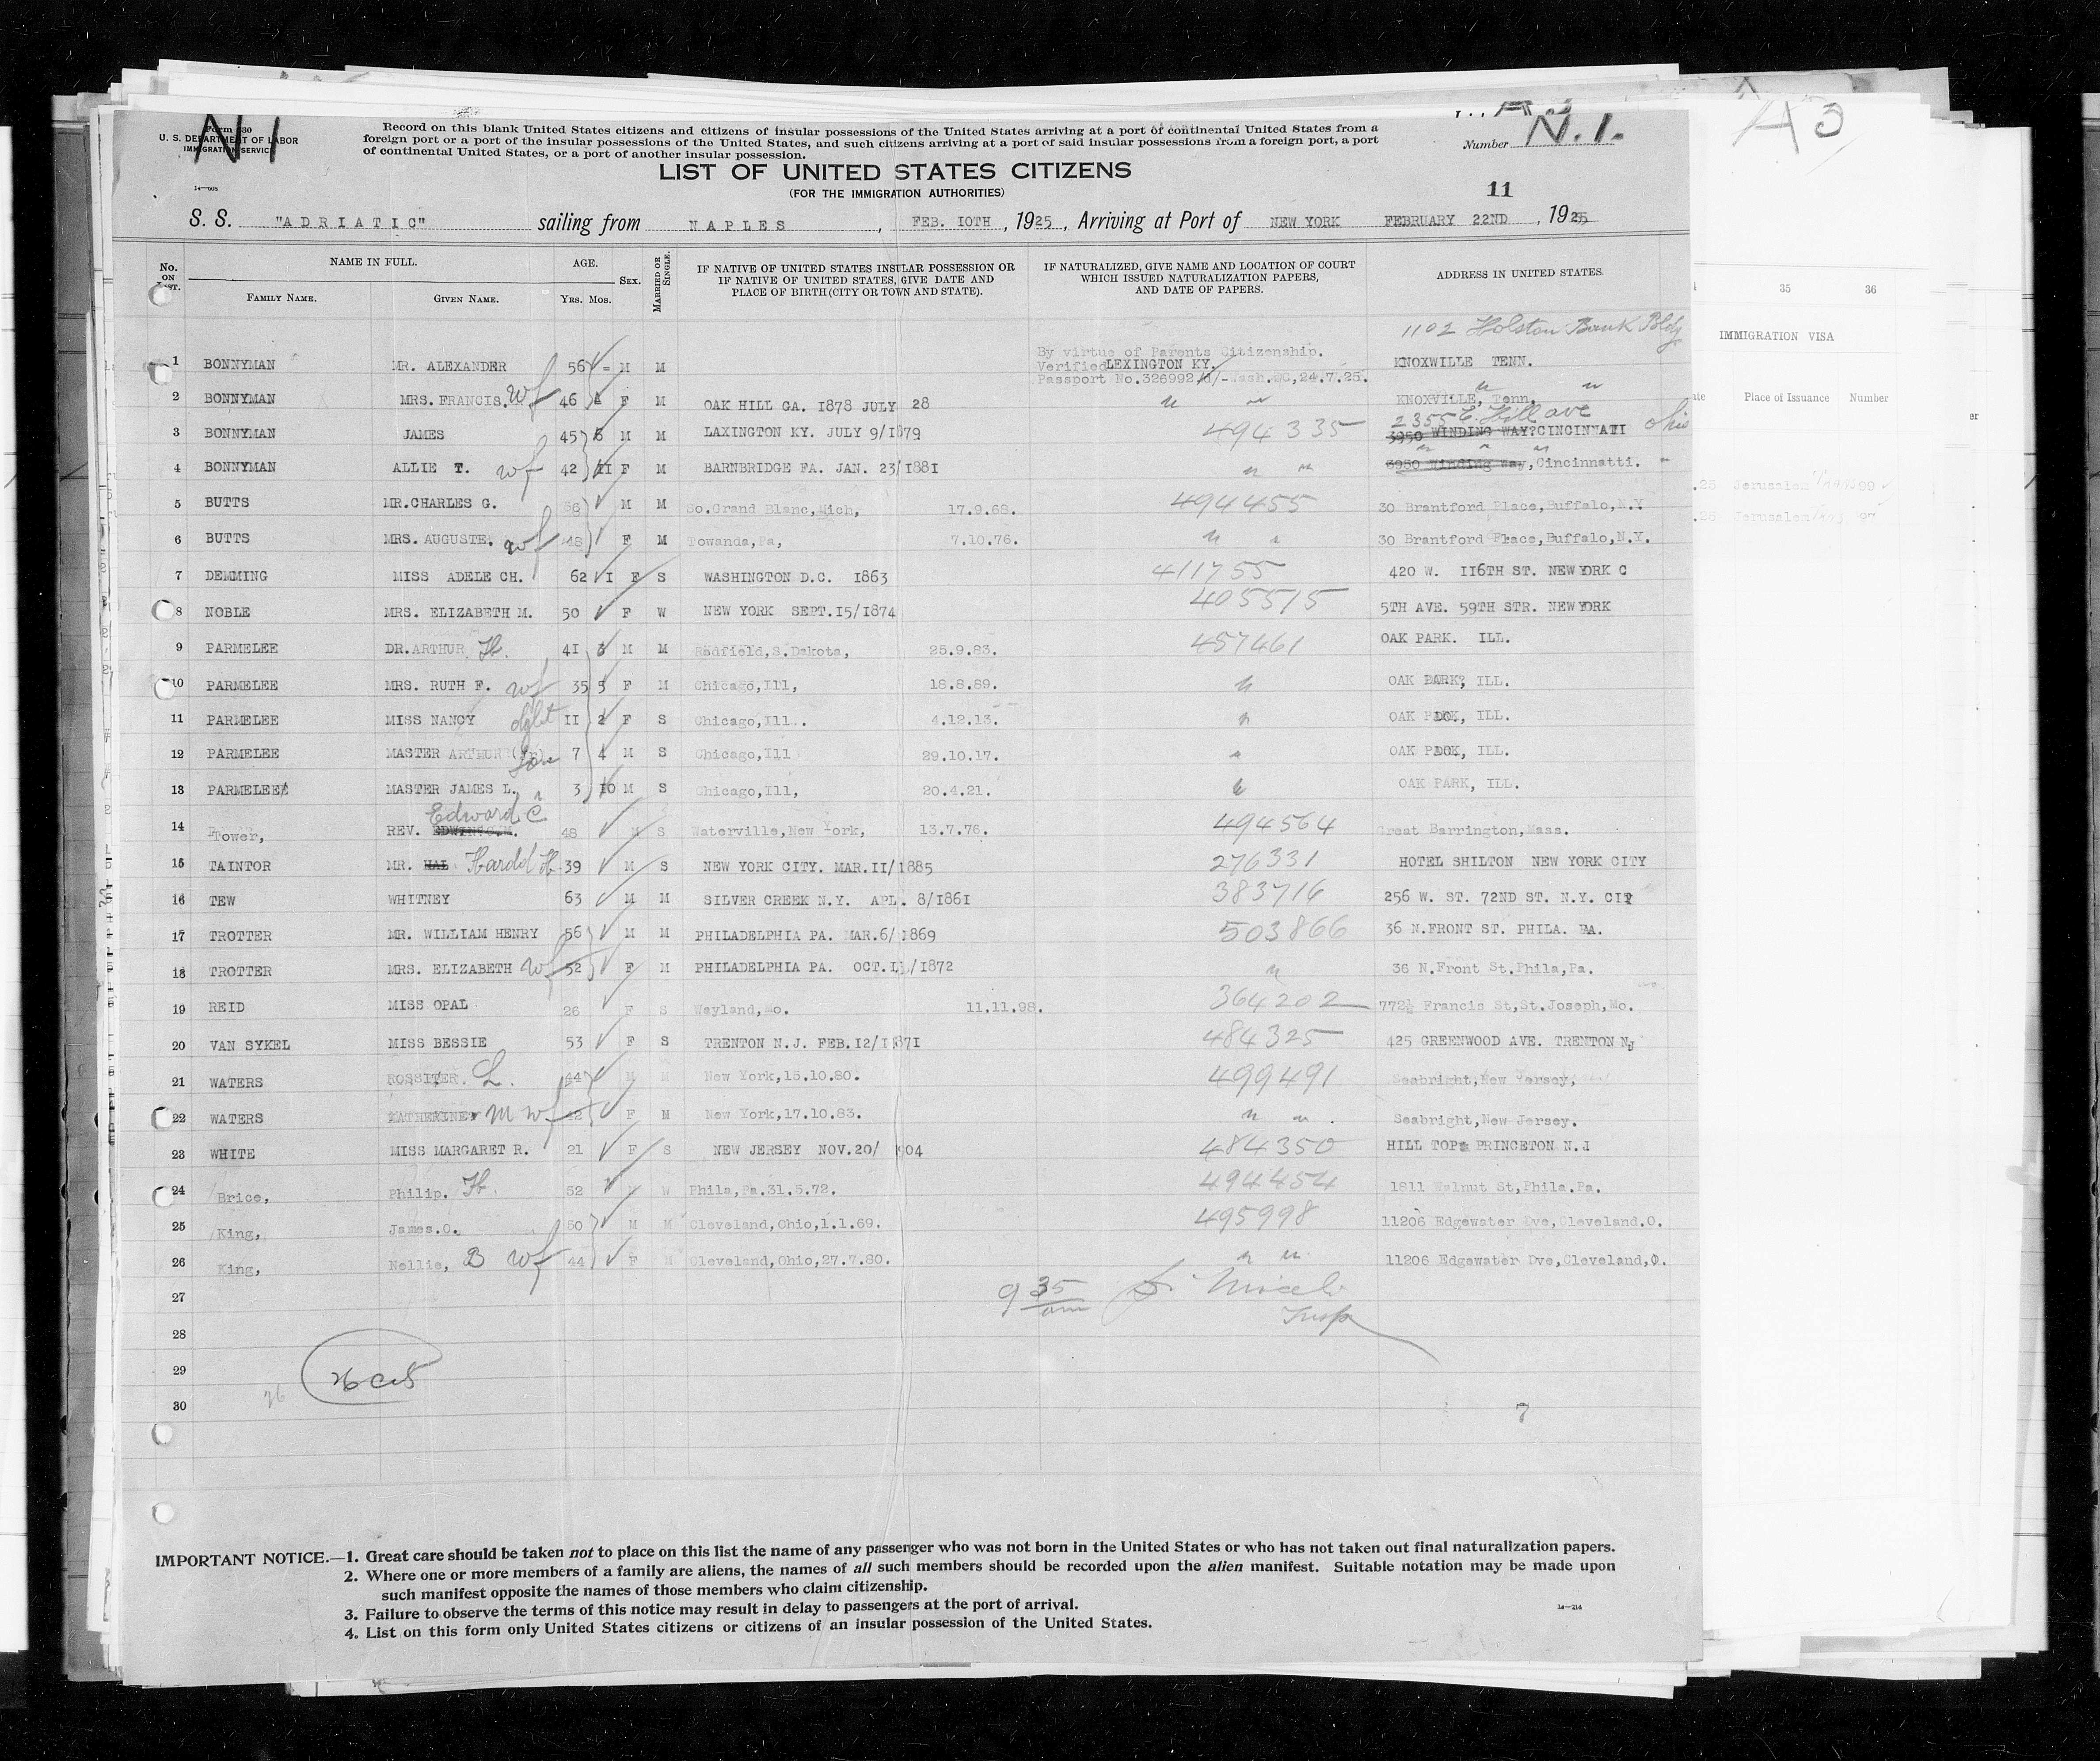 N1
Form 630
U. S. DEPARTMENT OF LABOR
IMMIGRATION SERVICE
Record on this blank United States citizens and citizens of insular possessions of the United States arriving at a port of continental United States from a
foreign port or a port of the insular possessions of the United States, and such citizens arriving at a port of said insular possessions from a foreign port, a port
of continental United States, or a port of another insular possession.
Number N.1.
A3
LIST OF UNITED STATES CITIZENS
(FOR THE IMMIGRATION AUTHORITIES)
11
S. S. "ADRIATIC" sailing from NAPLES, FEB. IOTH, 1925, Arriving at Port of NEW YORK FEBRUARY 22ND, 1925
No. ON LIST. NAME IN FULL. FAMILY NAME. GIVEN NAME. AGE. Yrs. Mos. SEX. MARRIED OR SINGLE. IF NATIVE OF UNITED STATES INSULAR POSSESSION OR IF NATIVE OF UNITED STATES, GIVE DATE AND PLACE OF BIRTH (CITY OR TOWN AND STATE). IF NATURALIZED, GIVE NAME AND LOCATION OF COURT WHICH ISSUED NATURALIZATION PAPERS, AND DATE OF PAPERS. ADDRESS IN UNITED STATES.
1102 Holston Bank Bldg
By virtue of Parents Citizenship.
1 BONNYMAN MR. ALEXANDER 56 - M M Verified LEXINGTON KY. KNOXWILLE TENN.
Passport No.326992 Wash.DC,24.7.25.
2 BONNYMAN MRS. FRANCIS. wf 46 F M OAK HILL GA. I878 JULY 28 " " KNOXVILLE, Tenn. " "
2355 E. Hill ave
3 BONNYMAN JAMES 45 6 M M LAXINGTON KY. JULY 9/I879 494335 3950 WINDING WAY?CINCINNATI Ohio
4 BONNYMAN ALLIE T. wf 42 II F M BARNBRIDGE FA. JAN. 23/I88I " " 3950 Winding Way, Cincinnatti.
5 BUTTS MR.CHARLES G. 56 M M So.Grand Blanc,Mich, 17.9.68. 494455 30 Brantford Place,Buffalo,N.Y
6 BUTTS MRS. AUGUSTE. wf 48 F M Towanda,Pa, 7.10.76. " " 30 Brantford Place,Buffalo,N.Y.
7 DEMMING MISS ADELE CH. 62 I F S WASHINGTON D.C. I863 411755 420 W. II6TH ST. NEW YORK C
8 NOBLE MRS. ELIZABETH M. 50 F W NEW YORK SEPT.I5/I874 405515 5TH AVE. 59TH STR. NEW YORK
9 PARMELEE DR.ARTHUR H. 4I M M Redfield,S.Dakota, 25.9.83. 457461 OAK PARK. ILL.
10 PARMELEE MRS. RUTH F. wf 35 5 F M Chicago,Ill, 18.8.89. " OAK PARK, ILL.
11 PARMELEE MISS NANCY dght II 2 F S Chicago,Ill. 4.12.13. " OAK PARK, ILL.
12 PARMELEE MASTER ARTHUR (Jr) son 7 4 M S Chicago,Ill 29.10.17. " OAK PARK, ILL.
13 PARMELEE MASTER JAMES L. " 3 IO M S Chicago,Ill, 20.4.21. " OAK PARK, ILL.
14 Tower, REV. Edward C 48 M S Waterville,New York, 13.7.76. 494564 Great Barrington,Mass.
15 TAINTOR MR. HAL Harold H 39 M S NEW YORK CITY. MAR.II/I885 276331 HOTEL SHILTON NEW YORK CITY
16 TEW WHITNEY 63 M M SILVER CREEK N.Y. APL. 8/I86I 383716 256 W. ST. 72ND ST. N.Y. CITY
17 TROTTER MR. WILLIAM HENRY 56 M M PHILADELPHIA PA. MAR.6/I869 503866 36 N.FRONT ST. PHILA. PA.
18 TROTTER MRS. ELIZABETH wf 52 F M PHILADELPHIA PA. " 36 N.Front St.Phila,Pa.
19 REID MISS OPAL 26 F S Wayland,Mo. 11.11.98. 364202 772½ Francis St,St.Joseph,Mo.
20 VAN SYKEL MISS BESSIE 53 F S TRENTON N.J. FEB.I2/I87I 484325 425 GREENWOOD AVE. TRENTON NJ
21 WATERS ROSSITER. L. 44 M M New York,15.10.80. 499491 Seabright,New Jersey,
22 WATERS KATHERINE M wf 42 F M New York,17.10.83. " " Seabright,New Jersey.
23 WHITE MISS MARGARET R. 21 F S NEW JERSEY NOV.20/ I904 484350 HILL TOP PRINCETON N.J
24 Brice, Philip. H. 52 M W Phila,Pa.31.5.72. 494454 1811 Walnut St,Phila.Pa.
25 King, James.O. 50 M M Cleveland,Ohio,1.1.69. 495998 11206 Edgewater Dve,Cleveland.O.
26 King, Nellie, B wf 44 F M Cleveland,Ohio,27.7.80. " " 11206 Edgewater Dve,Cleveland,O.
27 9 35 am Insp
28
29 26 cit
30 26 7
IMPORTANT NOTICE.—1. Great care should be taken not to place on this list the name of any passenger who was not born in the United States or who has not taken out final naturalization papers.
2. Where one or more members of a family are aliens, the names of all such members should be recorded upon the alien manifest. Suitable notation may be made upon
such manifest opposite the names of those members who claim citizenship.
3. Failure to observe the terms of this notice may result in delay to passengers at the port of arrival.
14—214
4. List on this form only United States citizens or citizens of an insular possession of the United States.
A3
35 36
IMMIGRATION VISA
Place of Issuance Number
Jerusalem 99
Jerusalem 97